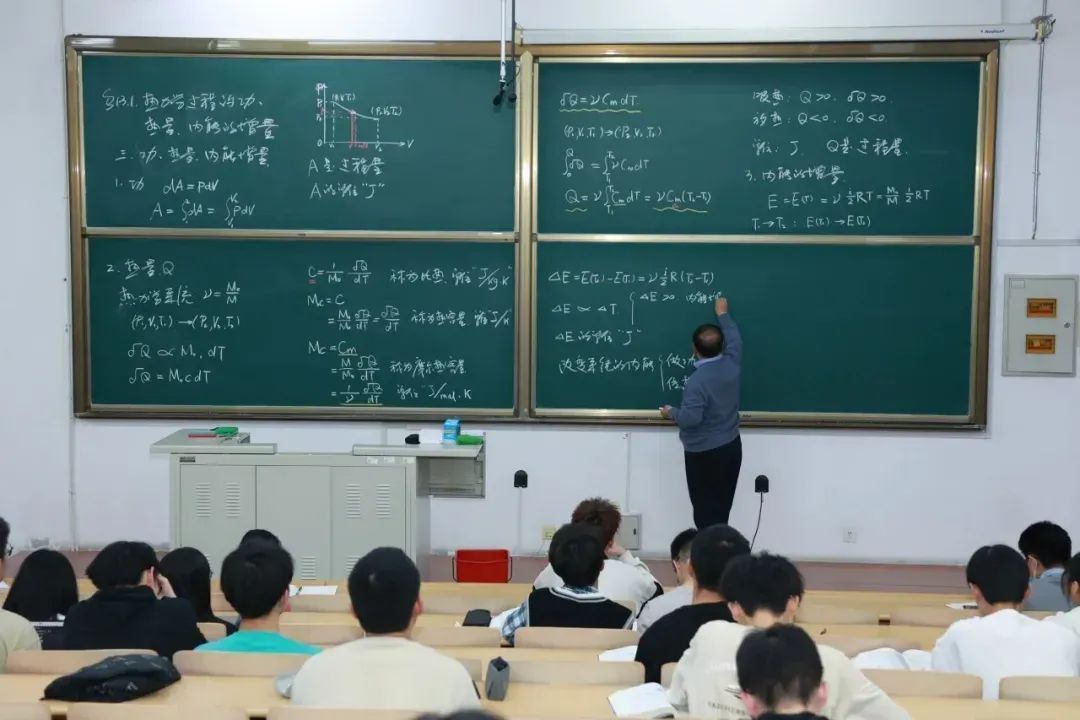 §13.1. 热力学过程的功、
热量、内能的增量
三. 功、热量、内能增量
1. 功 dA = PdV
A = ∫dA = ∫PdV
A是过程量
A的单位"J"
2. 热量 Q
热力学系统 ν = M₀/M
(P₁,V₁,T₁) → (P₂,V₂,T₂)
đQ ∝ M₀, dT
đQ = M₀cdT
C = 1/M₀ đQ/dT 称为比热, 单位"J/kg·K"
Mc = C
= M₀/M₀ đQ/dT = đQ/dT 称为热容量. 单位J/K
Mc = Cm
= M/M₀ đQ/dT 称为摩尔热容量
= 1/ν đQ/dT 单位"J/mol·K
đQ = νCm dT
(P₁,V₁,T₁) → (P₂,V₂,T₂)
∫đQ = ∫νCm dT
Q = ν∫Cm dT = νCm(T₂-T₁)
吸热: Q>0. đQ>0.
放热: Q<0. đQ<0.
单位: J. Q是过程量.
3. 内能的增量
E = E(T) = ν i/2 RT = M₀/M i/2 RT
T₁→T₂ : E(T₁)→E(T₂)
ΔE = E(T₂)-E(T₁) = ν i/2 R(T₂-T₁)
ΔE ∝ ΔT. { ΔE>0. 内能增
ΔE的单位"J"
改变系统的内能 { 做功